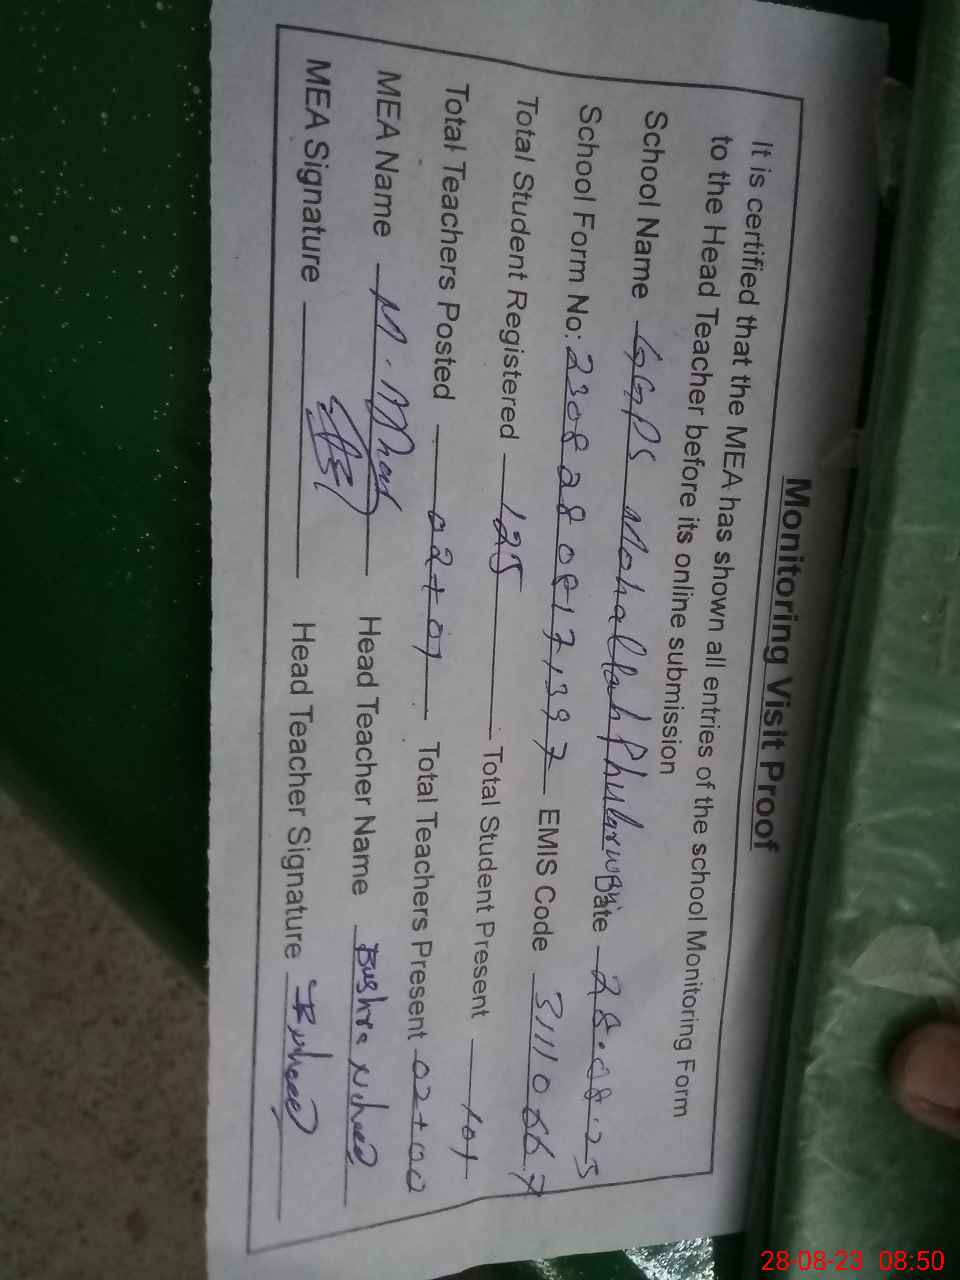 Monitoring Visit Proof
It is certified that the MEA has shown all entries of the school Monitoring Form
to the Head Teacher before its online submission
School Name GGPS Mohallah Date 28.08.25
School Form No: EMIS Code 31110667
Total Student Registered 125 Total Student Present 101
Total Teachers Posted 02+01 Total Teachers Present 02+00
MEA Name M. Head Teacher Name Bushra
MEA Signature Head Teacher Signature
28-08-23 08:50